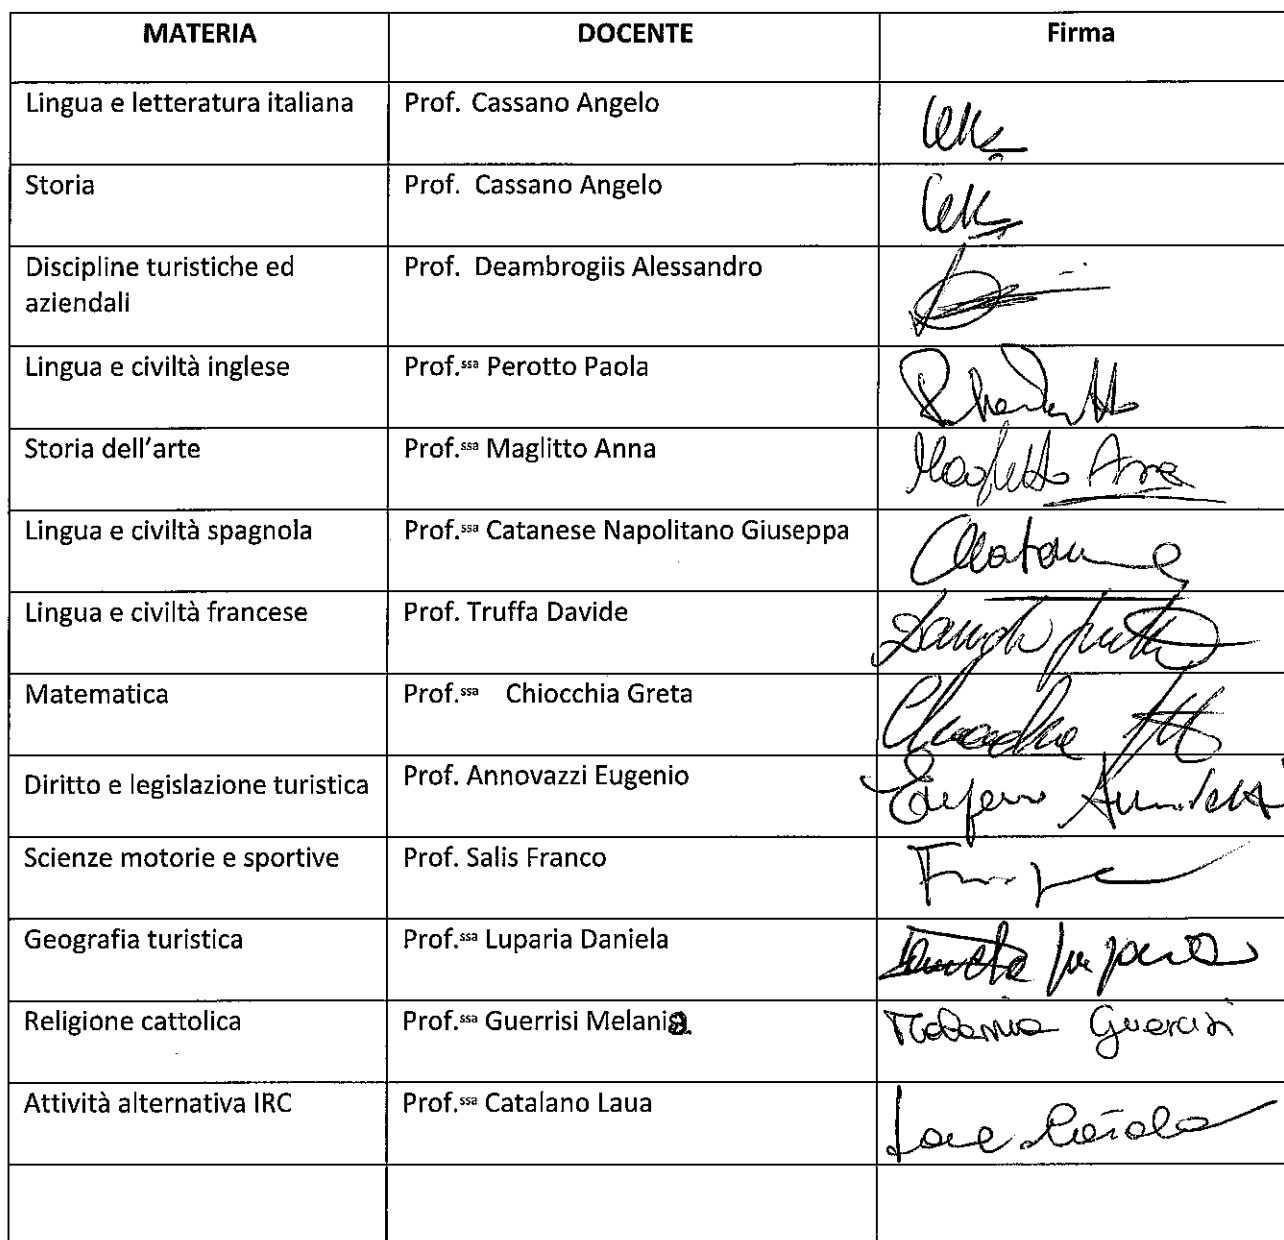 MATERIA DOCENTE Firma
Lingua e letteratura italiana Prof. Cassano Angelo
Storia Prof. Cassano Angelo
Discipline turistiche ed Prof. Deambrogiis Alessandro
aziendali
Lingua e civiltà inglese Prof.ssa Perotto Paola
Storia dell'arte Prof.ssa Maglitto Anna Maglitto Anna
Lingua e civiltà spagnola Prof.ssa Catanese Napolitano Giuseppa
Lingua e civiltà francese Prof. Truffa Davide
Matematica Prof.ssa Chiocchia Greta
Diritto e legislazione turistica Prof. Annovazzi Eugenio
Scienze motorie e sportive Prof. Salis Franco
Geografia turistica Prof.ssa Luparia Daniela
Religione cattolica Prof.ssa Guerrisi Melania Melania Guerrisi
Attività alternativa IRC Prof.ssa Catalano Laua